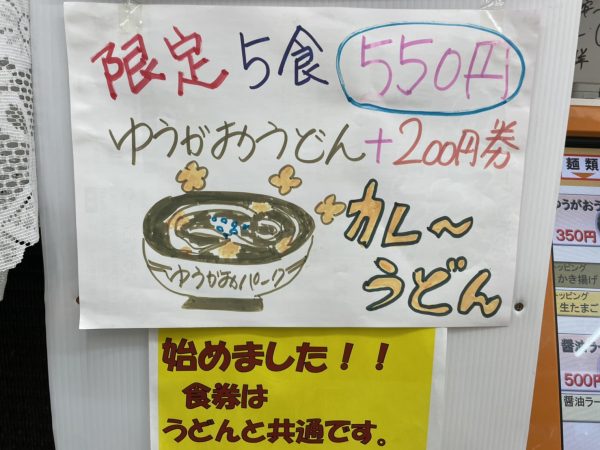 限定 5食 550円
ゆうがおうどん+200円券
カレ～
うどん
ゆうがおパーク
始めました！！
食券は
うどんと共通です。
麺類
ゆうがおう
350円
トッピング
かき揚げ
トッピング
生たまご
醤油ラ
500円
醤油ラー